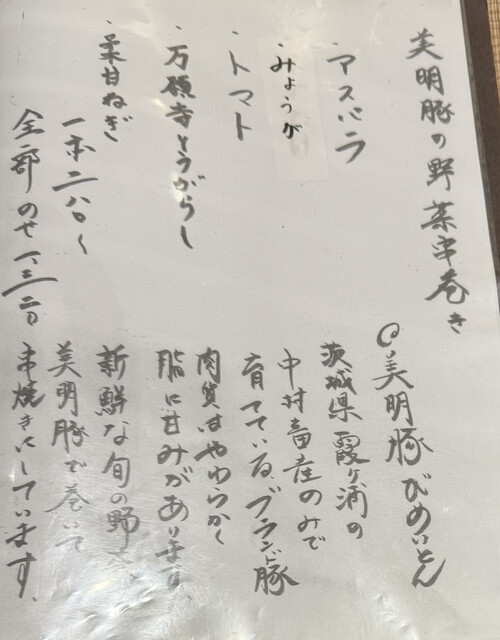 美明豚の野菜串巻き
・アスパラ
・みょうが
・トマト
・万願寺とうがらし
・柔甘ねぎ
一本二八〇〜
全部のせ一、三二〇
◎美明豚びめいとん
茨城県霞ヶ浦の
中村畜産のみで
育てているブランド豚
肉質はやわらかく
脂に甘みがあります
新鮮な旬の野菜
美明豚で巻いて
串焼きにしています。